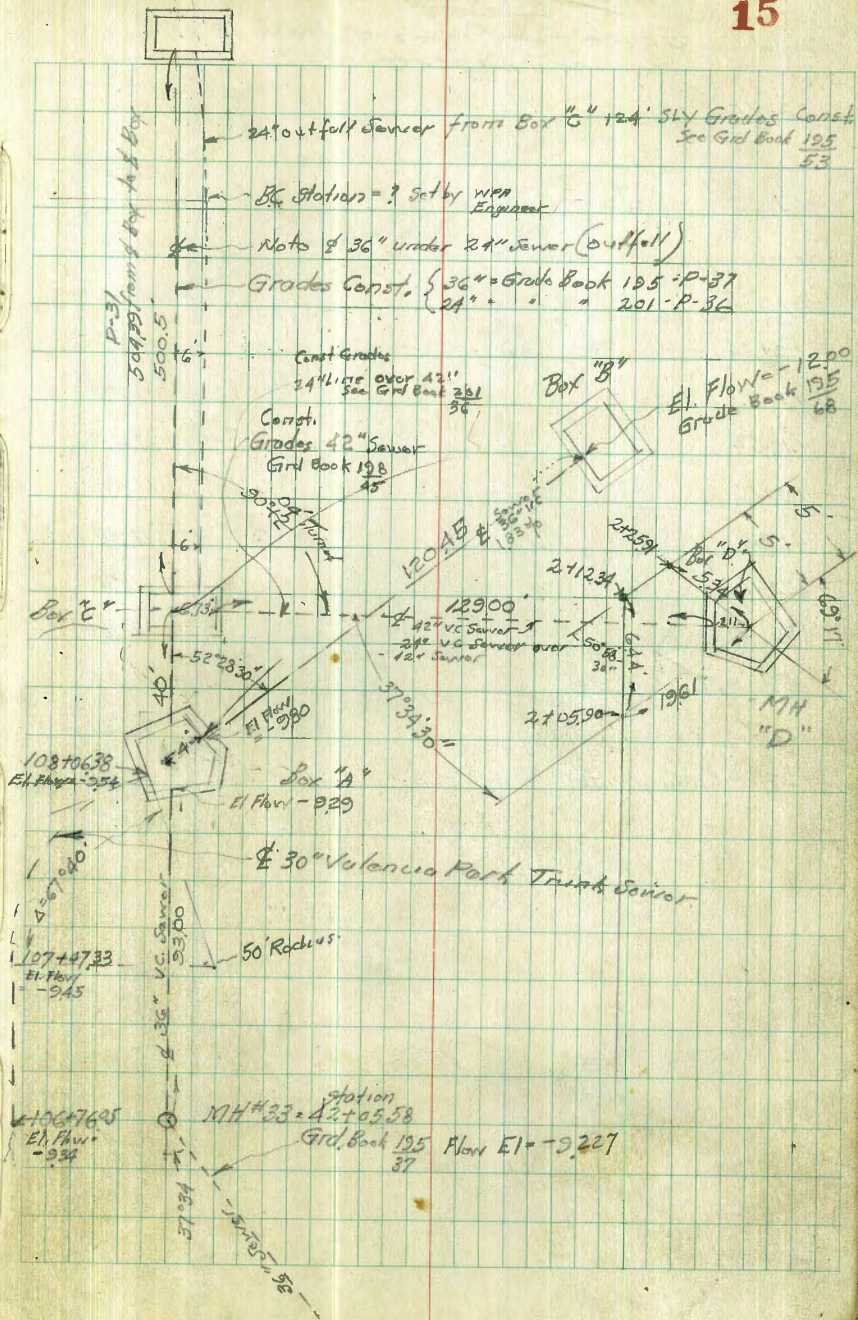 15
24" outfall Sewer from Box "C" +24' SLY Grades Const
See Grd Book 195
53
B.C. Station = ? Set by WPA
Engineer
Note ⅊ 36" under 24" Sewer (outfall)
Grades Const. { 36" = Grade Book 195 - P-37
24" " " " 201 - P-36
P-31
504.39 from ⅊ Box to ⅊ Box
500.5'
6'
Const Grades
24" Line over 42"
See Grd Book 201
36
Const.
Grades 42" Sewer
Grd Book 198
45
Box "B"
El. Flow = -12.00
Grade Book 195
68
90°12'
6'
120.45 ⅊
Sewer
36" VC
5'
5'
69°17'
2+25.91
Box "D"
5.34
2+12.34
Box "C"
129.00'
42" VC Sewer
24" VC Sewer over
42" Sewer
50°58'
30"
6.44
2.11
52°28'30"
40'
El Flow
-9.80
37°34'30"
2+05.90
19.61
MH
"D"
4'
108+06.38
El. Flow = -9.54
Box "A"
El Flow - 9.29
⅊ 30" Valencia Park Trunk Sewer
Δ=67°40'
107+47.33
El. Flow
-9.45
50' Radius
⅊ 36" VC. Sewer
93.00
106+76.95
El. Flow =
-9.34
station
MH #33 = 42+05.58
Grd. Book 195 Flow El = -9.227
37
37°34'
36" Sewer